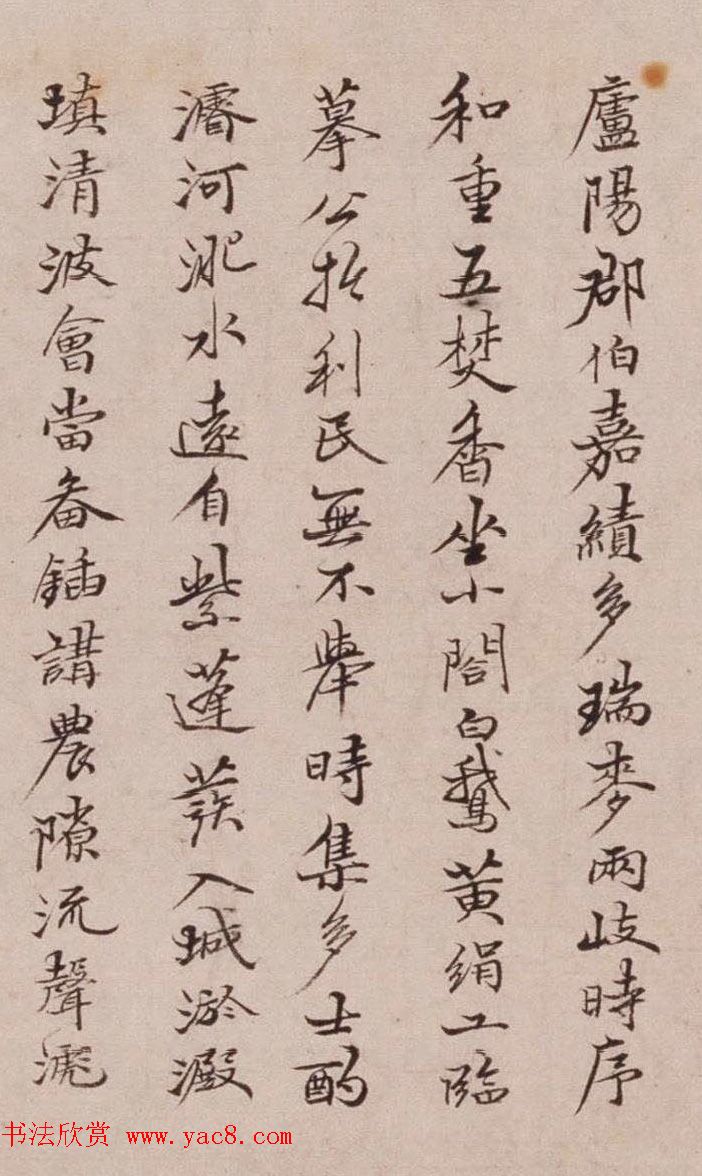 廬陽郡伯嘉績多瑞麥兩岐時序
和重五焚香坐小閣白鵝黃絹工臨
摹公於利民無不舉時集多士酌
濬河淝水遠自紫蓬發入城淤澱
填清波會當畚鍤講農隙流聲淲
书法欣赏 www.yac8.com